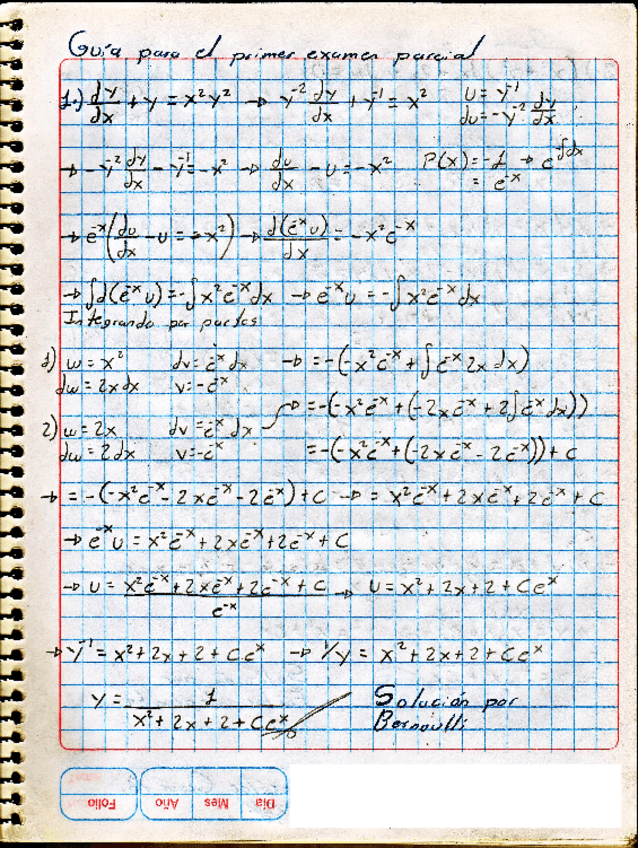 Guía para el primer examen parcial
1.) dy/dx + y = x²y² → y⁻² dy/dx + y⁻¹ = x² u = y⁻¹ du = -y⁻² dy/dx
→ -y⁻² dy/dx - y⁻¹ = -x² → du/dx - u = -x² P(x) = -1 → e^∫dx = e⁻ˣ
→ e⁻ˣ(du/dx - u = -x²) → d(e⁻ˣu)/dx = -x²e⁻ˣ
→ ∫d(e⁻ˣu) = -∫x²e⁻ˣdx → e⁻ˣu = -∫x²e⁻ˣdx
Integrando por partes
1) w = x² dv = e⁻ˣdx → = -(-x²e⁻ˣ + ∫e⁻ˣ2x dx)
dw = 2xdx v = -e⁻ˣ
→ = -(-x²e⁻ˣ + (-2xe⁻ˣ + 2∫e⁻ˣdx))
2) w = 2x dv = e⁻ˣdx
dw = 2dx v = -e⁻ˣ = -(-x²e⁻ˣ + (-2xe⁻ˣ - 2e⁻ˣ)) + C
→ = -(-x²e⁻ˣ - 2xe⁻ˣ - 2e⁻ˣ) + C → = x²e⁻ˣ + 2xe⁻ˣ + 2e⁻ˣ + C
→ e⁻ˣu = x²e⁻ˣ + 2xe⁻ˣ + 2e⁻ˣ + C
→ u = (x²e⁻ˣ + 2xe⁻ˣ + 2e⁻ˣ + C)/e⁻ˣ → u = x² + 2x + 2 + Ceˣ
→ y⁻¹ = x² + 2x + 2 + Ceˣ → 1/y = x² + 2x + 2 + Ceˣ
y = 1/(x² + 2x + 2 + Ceˣ) Solución por
Bernoulli
Folio Año Mes Día